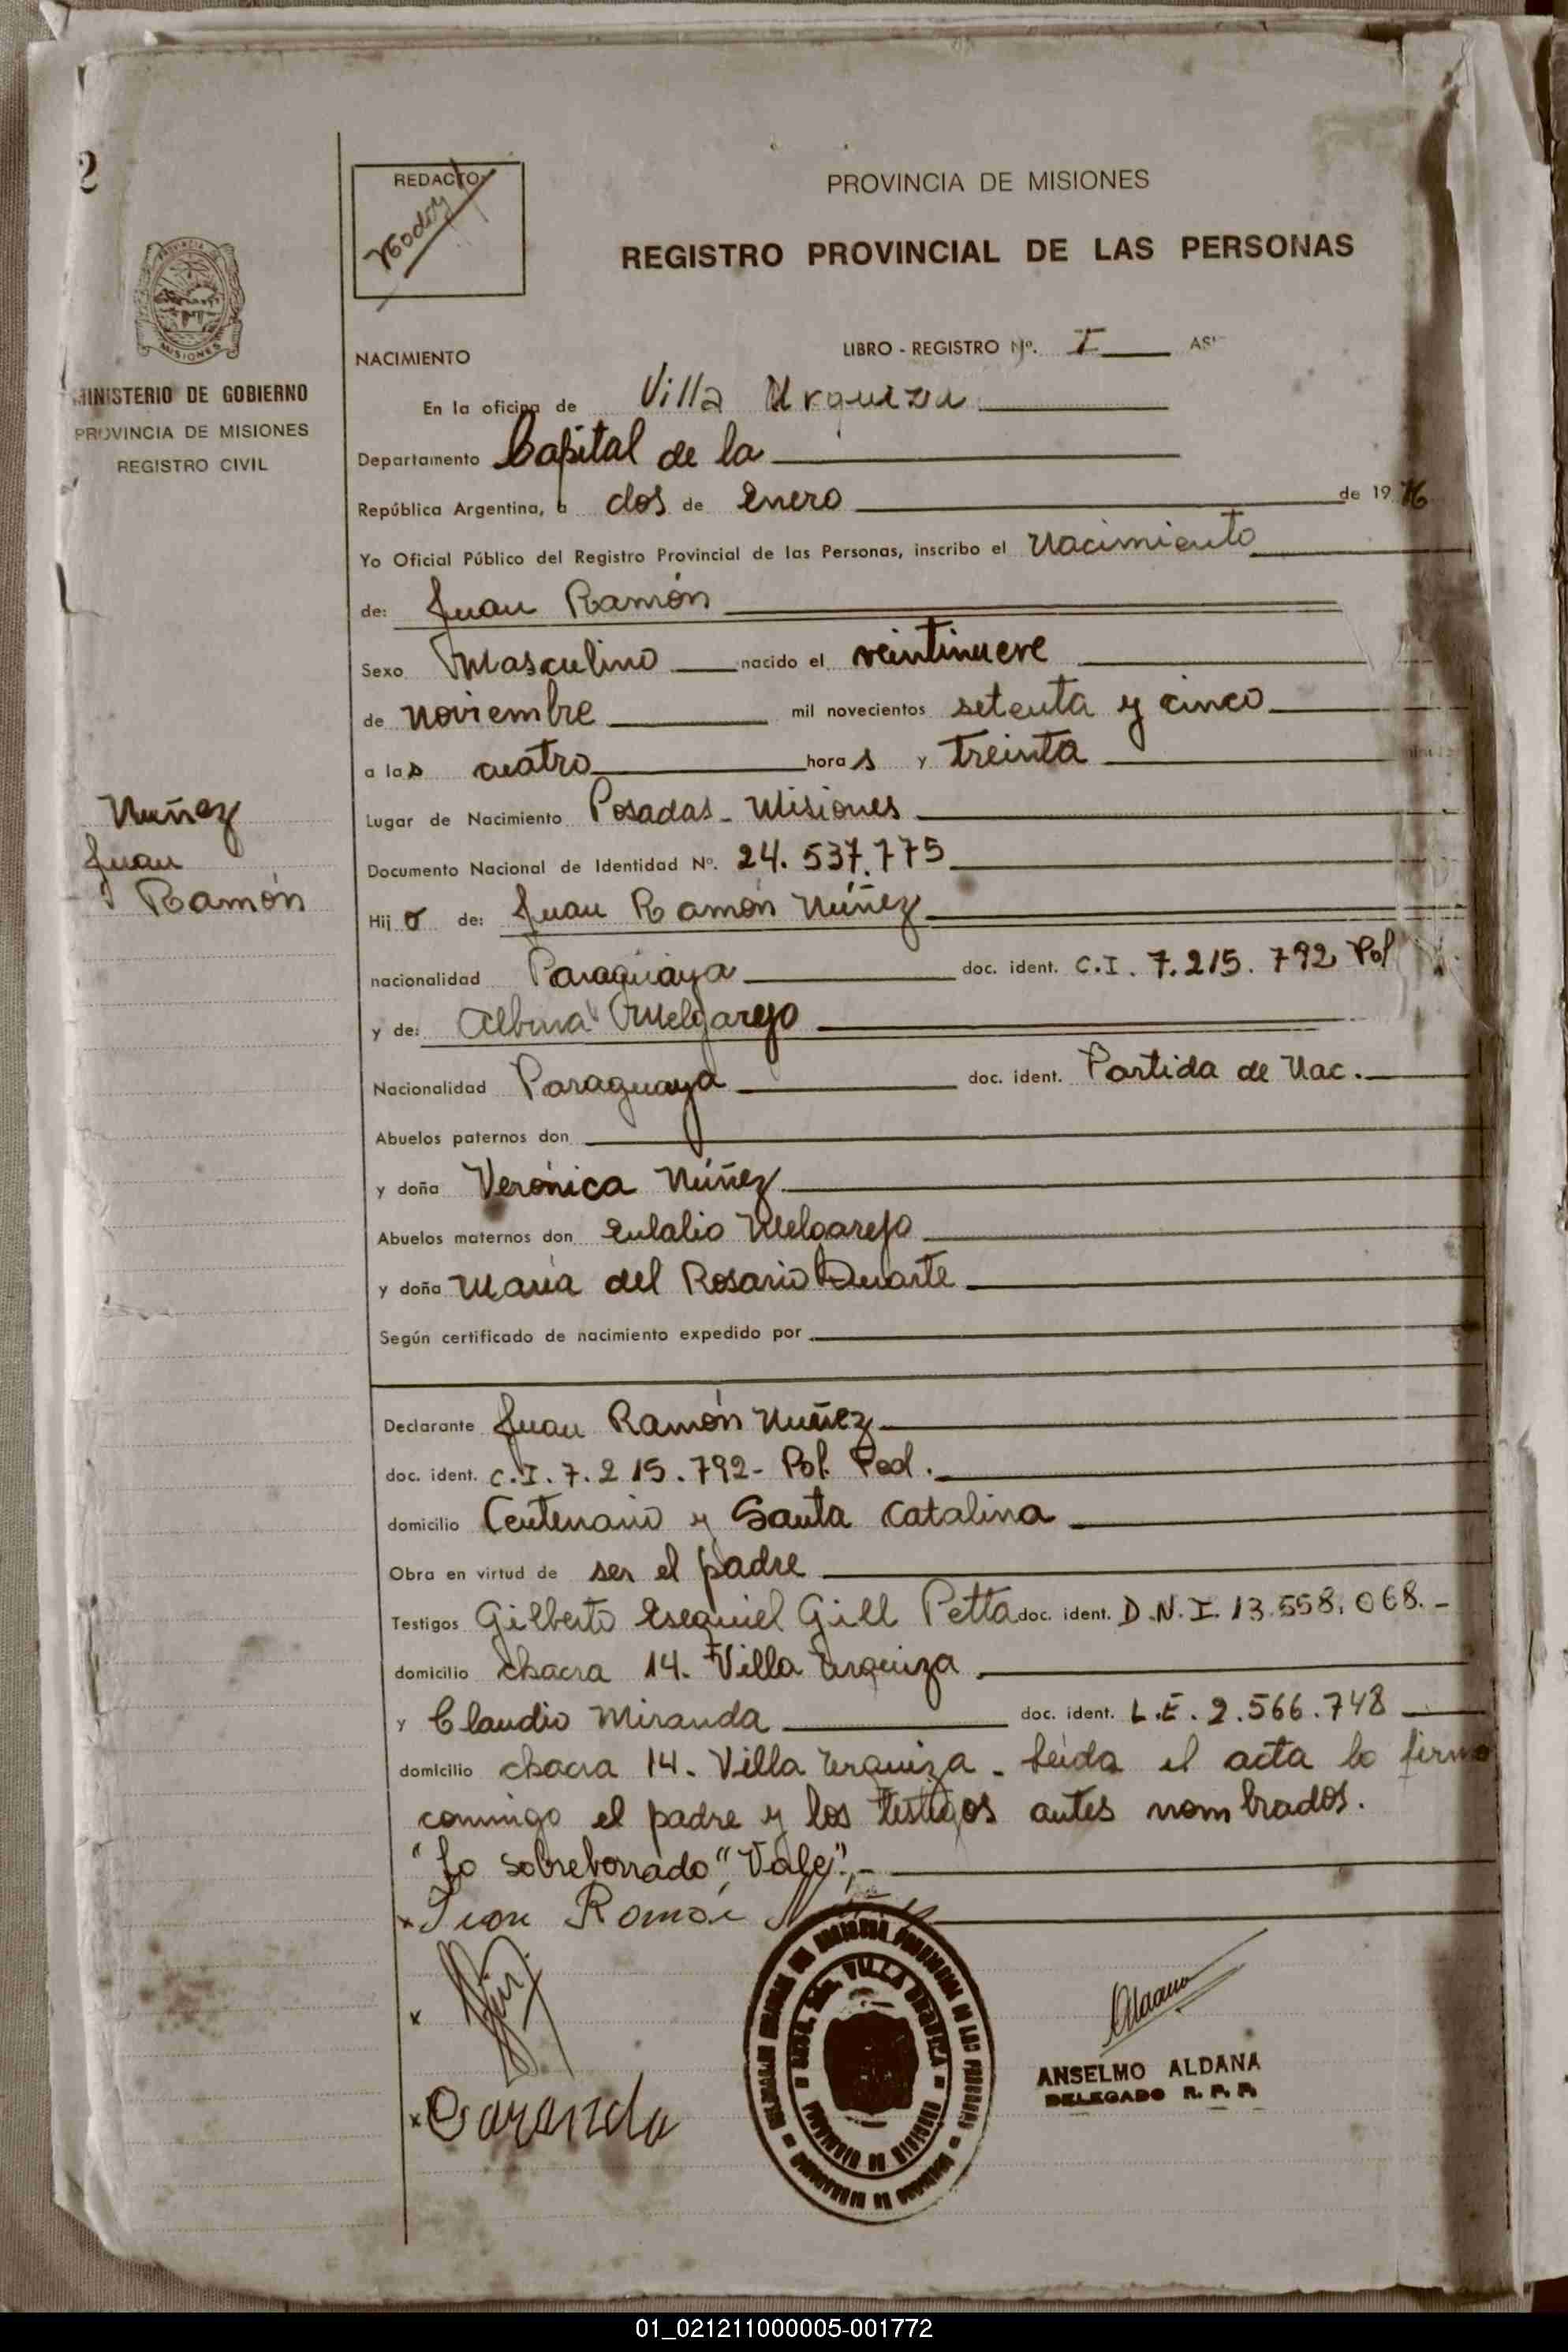 2
REDACTO:
PROVINCIA DE MISIONES
REGISTRO PROVINCIAL DE LAS PERSONAS
PROVINCIA
MISIONES
MINISTERIO DE GOBIERNO
PROVINCIA DE MISIONES
REGISTRO CIVIL
NACIMIENTO LIBRO - REGISTRO Nº. I
En la oficina de Villa Urquiza
Departamento Capital de la
República Argentina, a dos de Enero de 1976
Yo Oficial Público del Registro Provincial de las Personas, inscribo el Nacimiento
de: Juan Ramón
Sexo Masculino nacido el veintinueve
de noviembre mil novecientos setenta y cinco
a las cuatro horas y treinta
Lugar de Nacimiento Posadas - Misiones
Nuñez
Juan
Ramón
Documento Nacional de Identidad Nº. 24.537.775
Hijo de: Juan Ramón Núñez
nacionalidad Paraguaya doc. ident. C.I. 7.215.792 Pol
y de: Albina Melgarejo
Nacionalidad Paraguaya doc. ident. Partida de Nac.
Abuelos paternos don
y doña Verónica Núñez
Abuelos maternos don Eulalio Melgarejo
y doña María del Rosario Duarte
Según certificado de nacimiento expedido por
Declarante Juan Ramón Nuñez
doc. ident. C.I. 7.215.792- Pol. Fed.
domicilio Centenario y Santa Catalina
Obra en virtud de ser el padre
Testigos Gilberto Esequiel Gill Petta doc. ident. D.N.I. 13.558.068.-
domicilio chacra 14. Villa Urquiza
y Claudio Miranda doc. ident. L.E. 2.566.748
domicilio chacra 14. Villa Urquiza - Leída el acta la firma
conmigo el padre y los testigos antes nombrados.
"Lo sobreborrado", "Vale".-
x Juan Ramón
x
x
VILLA URQUIZA
PROVINCIA DE MISIONES
ANSELMO ALDANA
DELEGADO R. P. P.
01_021211000005-001772